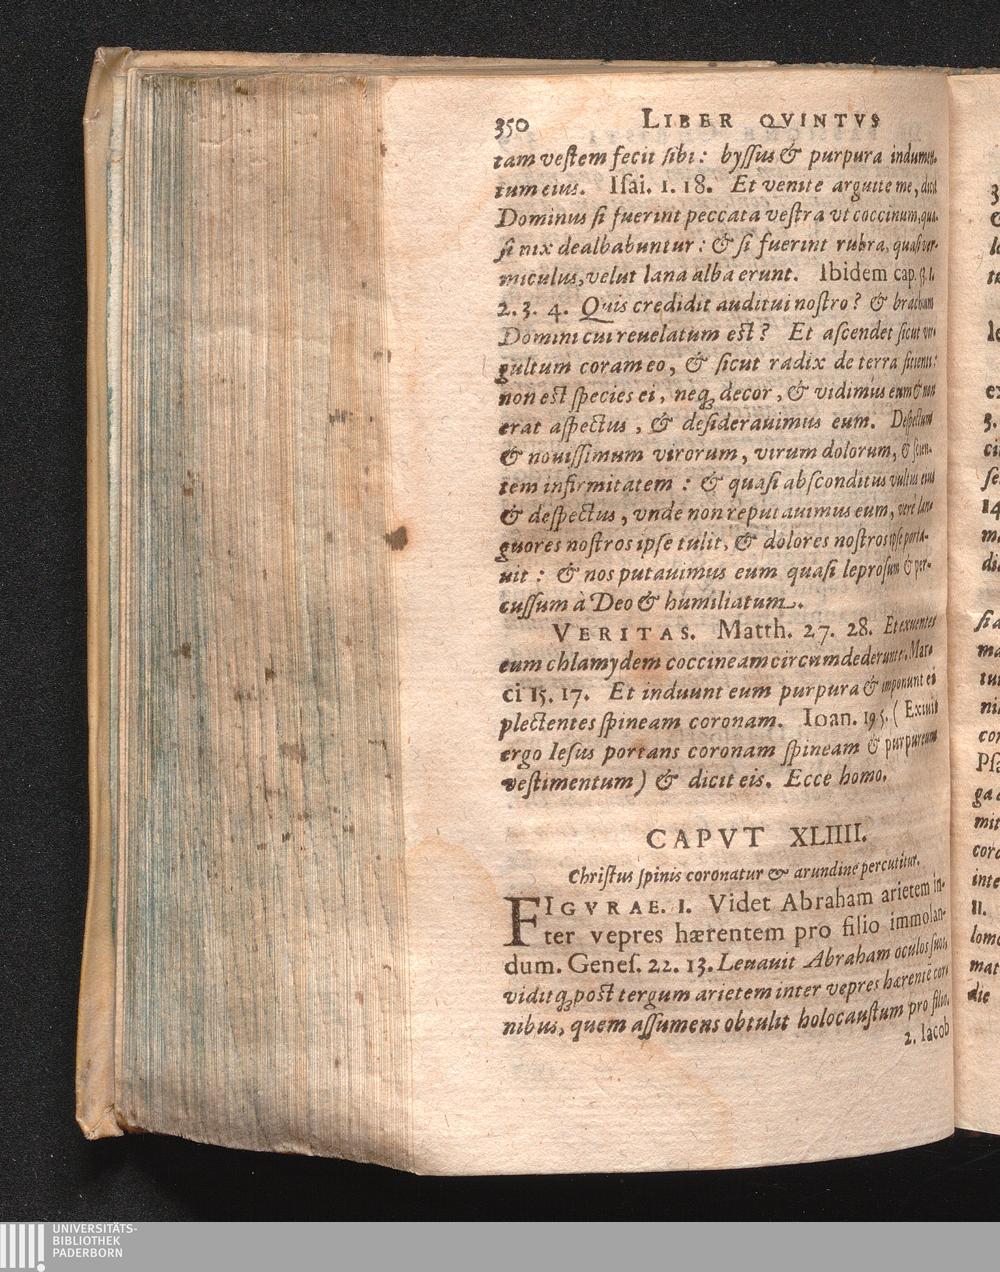 350 LIBER QVINTVS
tam vestem fecit sibi: byssus & purpura indumen-
tum eius. Isai. 1. 18. Et venite arguite me, dicit
Dominus si fuerint peccata vestra vt coccinum, qua-
si nix dealbabuntur: & si fuerint rubra, quasi ver-
miculus, velut lana alba erunt. Ibidem cap. 53. 1.
2. 3. 4. Quis credidit auditui nostro? & brachium
Domini cui reuelatum est? Et ascendet sicut vir-
gultum coram eo, & sicut radix de terra sitienti:
non est species ei, neq; decor, & vidimus eum & non
erat aspectus, & desiderauimus eum. Despectum
& nouissimum virorum, virum dolorum, & scien-
tem infirmitatem: & quasi absconditus vultus eius
& despectus, vnde non reputauimus eum, verè lan-
guores nostros ipse tulit, & dolores nostros ipse porta-
uit: & nos putauimus eum quasi leprosum & per-
cussum à Deo & humiliatum.
VERITAS. Matth. 27. 28. Et exuentes
eum chlamydem coccineam circumdederunt. Mar-
ci 15. 17. Et induunt eum purpura & imponunt ei
plectentes spineam coronam. Ioan. 19 5. ( Exiuit
ergo Iesus portans coronam spineam & purpureum
vestimentum) & dicit eis. Ecce homo.
CAPVT XLIIII.
Christus spinis coronatur & arundine percutitur.
FIGVRAE. I. Videt Abraham arietem in-
ter vepres hærentem pro filio immolan-
dum. Genes. 22. 13. Leuauit Abraham oculos suos,
viditq; post tergum arietem inter vepres hærentē cor-
nibus, quem assumens obtulit holocaustum pro filio.
2. Iacob
UNIVERSITÄTS-
BIBLIOTHEK
PADERBORN